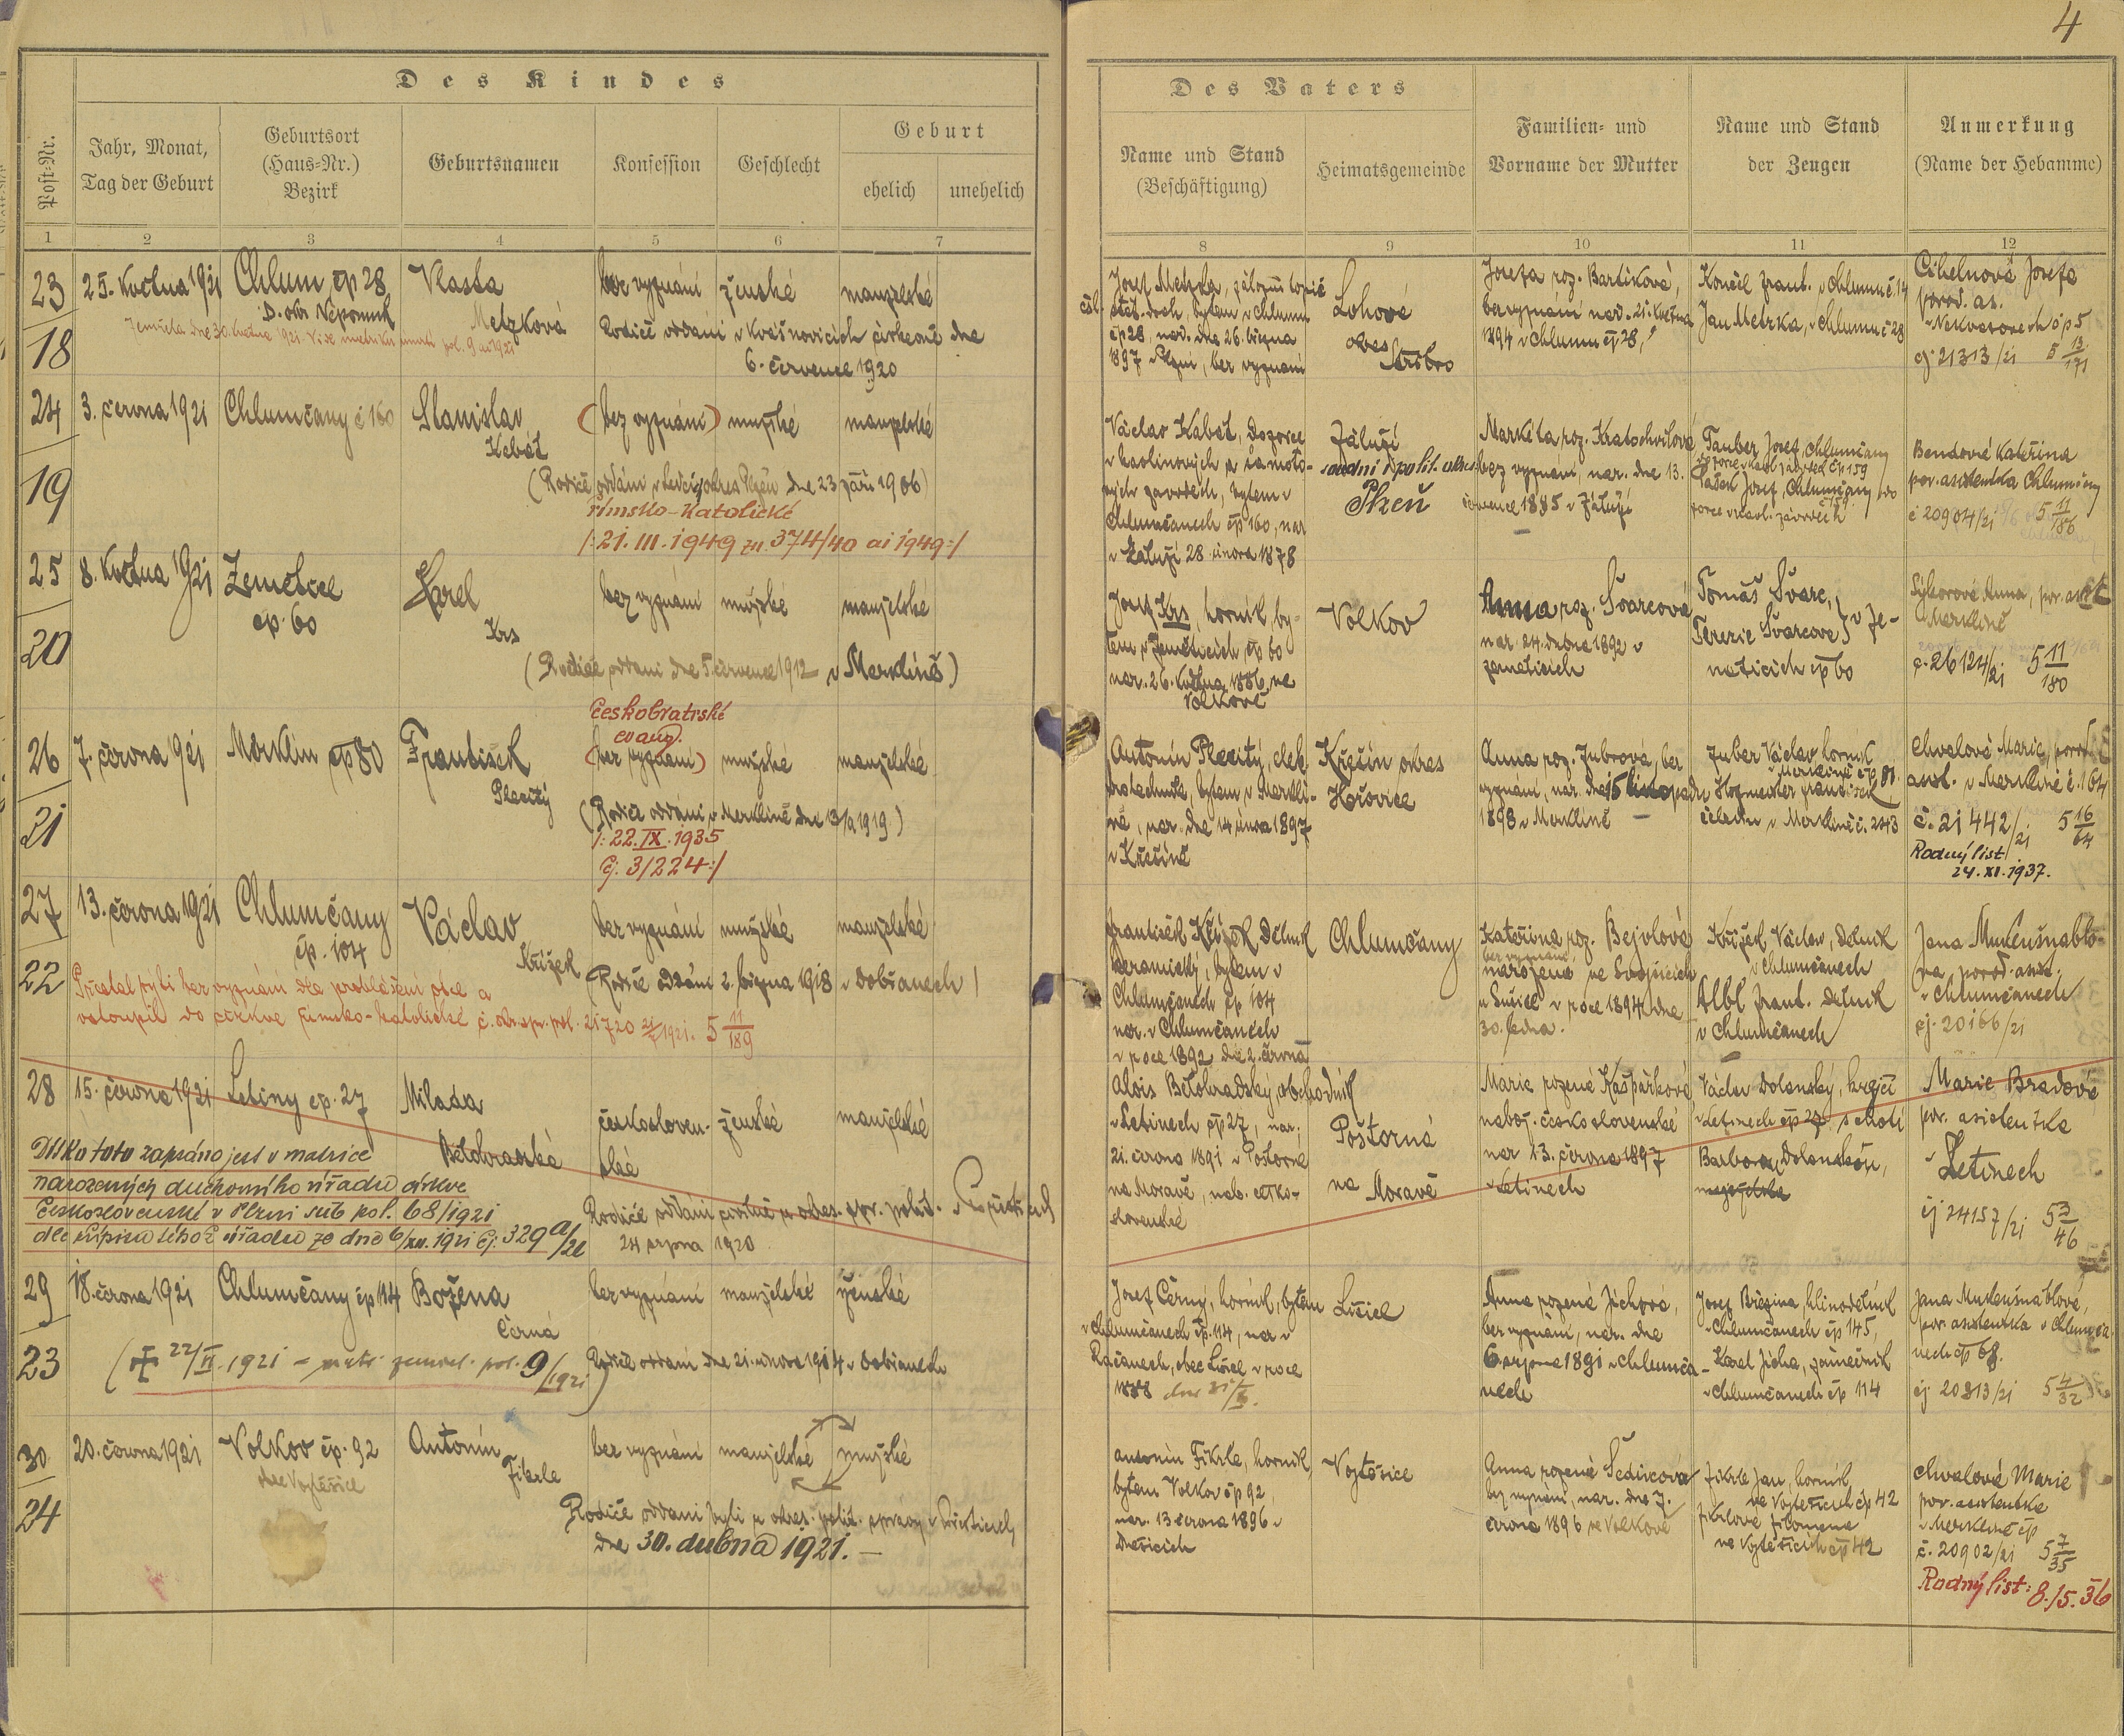 4
Des Kindes
Post-Nr.
Jahr, Monat,
Tag der Geburt
Geburtsort
(Haus-Nr.)
Bezirk
Geburtsnamen
Konfession
Geschlecht
Geburt
ehelich
unehelich
Des Vaters
Name und Stand
(Beschäftigung)
Heimatsgemeinde
Familien- und
Vorname der Mutter
Name und Stand
der Zeugen
Anmerkung
(Name der Hebamme)
1 2 3 4 5 6 7 8 9 10 11 12
23
18
25. května 1921
Chlum, čp 28
D. okr. Nepomuk
Vlasta
Metzková
bez vyznání
ženské
manželské
Rodiče oddáni v Kvášňovicích církevně dne
6. července 1920
Josef Metzka,
bytem v Chlumu
čp 28, nar. dne 26. března
1897 v Plzni, bez vyznání
Lohová
okres
Stříbro
Josefa roz. Bartíková,
bez vyznání nar. 21. května
1894 v Chlumu čp 28,
v Chlumu č. 14
Jan Metzka, v Chlumu č 28
Cihelnová Josefa
porod. as.
v Nekvasovech čp 5
čj. 21313/21 5 13/171
24
19
3. června 1921
Chlumčany č 160
Stanislav
Kabát
(bez vyznání)
mužské
manželské
(Rodiče oddáni okres Plzeň dne 23 září 1906)
římsko-katolické
/: 21. III. 1949 zn. 374/40 ai 1949:/
Václav Kabát, dozorce
v kaolinových a šamoto-
vých závodech, bytem v
Chlumčanech čp 160, nar
v Záluží 28. února 1878
Záluží
soudní i polit. okres
Plzeň
Markéta roz. Kratochvílová
bez vyznání, nar. dne 13.
července 1885 v Záluží
Tauber Josef, Chlumčany
Josef, Chlumčany
Bendová Kateřina
por. asistentka Chlumčany
č 20904/21 5 11/186
25
20
8. května 1921
Zemětice
čp. 60
Karel
Krs
bez vyznání
mužské
manželské
(Rodiče oddáni dne 5. července 1912 v Merklíně)
Josef Krs, horník, by-
tem v Zeměticích čp 60
nar. 26. května 1886 ve
Volkově
Volkov
Anna roz. Švarcová
nar. 24. dubna 1892 v
Zemeticích
Tomáš Švarc,
Terezie Švarcová } v Ze-
meticích čp 60
Sýkorová Anna, por. asist.
Merklíně
č. 26124/21 5 11/180
26
21
7. června 1921
Merklín čp 80
František
Plecitý
českobratrské
evang.
(bez vyznání)
mužské
manželské
(Rodiče oddáni v Merklíně dne 13/9 1919)
/: 22. IX. 1935
čj. 3/224:/
Antonín Plecitý, elek-
trotechnik, bytem v Merklí-
ně, nar. dne 14 února 1897
v Křešíně
Křešín okres
Hořovice
Anna roz. Zubrová, bez
vyznání, nar. dne 15 listopadu
1898 v Merklíně
Zuber Václav horník
v Merklíně čp 81.
Hofmeister František
v Merklíně č. 243
Chvalová Marie, porod.
asist. v Merklíně č. 164
č. 21442/21 5 16/64
Rodný list
24. XI. 1937.
27
22
13. června 1921
Chlumčany
čp. 104
Václav
Křížek
bez vyznání
mužské
manželské
(Rodiče oddáni 2. března 1918 v Dobřanech)
Přestal býti bez vyznání dle prohlášení otce a
vstoupil do církve římsko-katolické č. okr. spr. pol. 21720 1921. 5 11/189
František Křížek dělník
keramický, bytem v
Chlumčanech čp 104
nar. v Chlumčanech
v roce 1892 dne 2. června
Chlumčany
Kateřina roz. Bejvlová
bez vyznání
narozená ve Svojšicích
u Sušice v roce 1894 dne
30. ledna.
Křížek Václav, dělník
v Chlumčanech
Albl Frant. dělník
v Chlumčanech
Jana Muknšnáblo-
vá porod. asist.
v Chlumčanech
čj. 20166/21
28
15. června 1921
Letiny čp. 27
Milada
Bělohradská
českosloven-
ské
ženské
manželské
Dítko toto zapsáno jest v matrice
narozených duchovního úřadu církve
Československé v Plzni sub pol. 68/1921
dle přípisu téhož úřadu ze dne 6/XII. 1921 čj. 329a/21
Rodiče oddáni civilně u okres. spr. polit. v Přešticích
24 srpna 1920
Alois Bělohradský obchodník
v Letinech čp 27, nar.
21. června 1891 v Poštorné
na Moravě, nab. česko-
slovenské
Poštorná
na Moravě
Marie rozená Kašpárková
nábož. československé
nar 13. června 1897
v Letinech
Václav Dolanský, krejčí
v Letinech čp 27, s chotí
Barborou Dolanskou,
Marie Bradová
por. asistentka
v Letinech
čj 24157/21 5 3/46
29
23
18. června 1921
Chlumčany čp 114
Božena
Černá
bez vyznání
manželské
ženské
(✝ 22/VI. 1921 – matr. zemřel. pol. 9/1921)
Rodiče oddáni dne 21. února 1914 v Dobřanech
Josef Černý, horník, bytem
v Chlumčanech čp. 114, nar. v
Račanech, obec Lišice v roce
1888 dne 31/X.
Lišice
Anna rozená Jíchová,
bez vyznání, nar. dne
6 srpna 1891 v Chlumča-
nech
Josef Březina,
v Chlumčanech čp 145,
Karel Jícha, zámečník
v Chlumčanech čp 114
Jana Muknšnáblová,
por. asistentka v Chlumča-
nech čp 68.
čj 20813/21 5 4/32
30
24
20. června 1921
Volkov čp. 92
obec Vojtěšice
Antonín
Fikrle
bez vyznání
manželské
mužské
Rodiče oddáni byli u okres. polit. správy v Přešticích
dne 30. dubna 1921. –
Antonín Fikrle, horník
bytem Volkov čp 92
nar. 13 června 1896 v
Dnešicích
Vojtěšice
Anna rozená Šedivcová
bez vyznání, nar. dne 7.
června 1896 ve Volkově
Fikrle Jan, horník
ve Vojtěšicích čp 42
Fikrlová Filomena
ve Vojtěšicích čp 42
Chvalová Marie
por. asistentka
v Merklíně čp
č. 20902/21 5 7/35
Rodný list: 8./5. 36